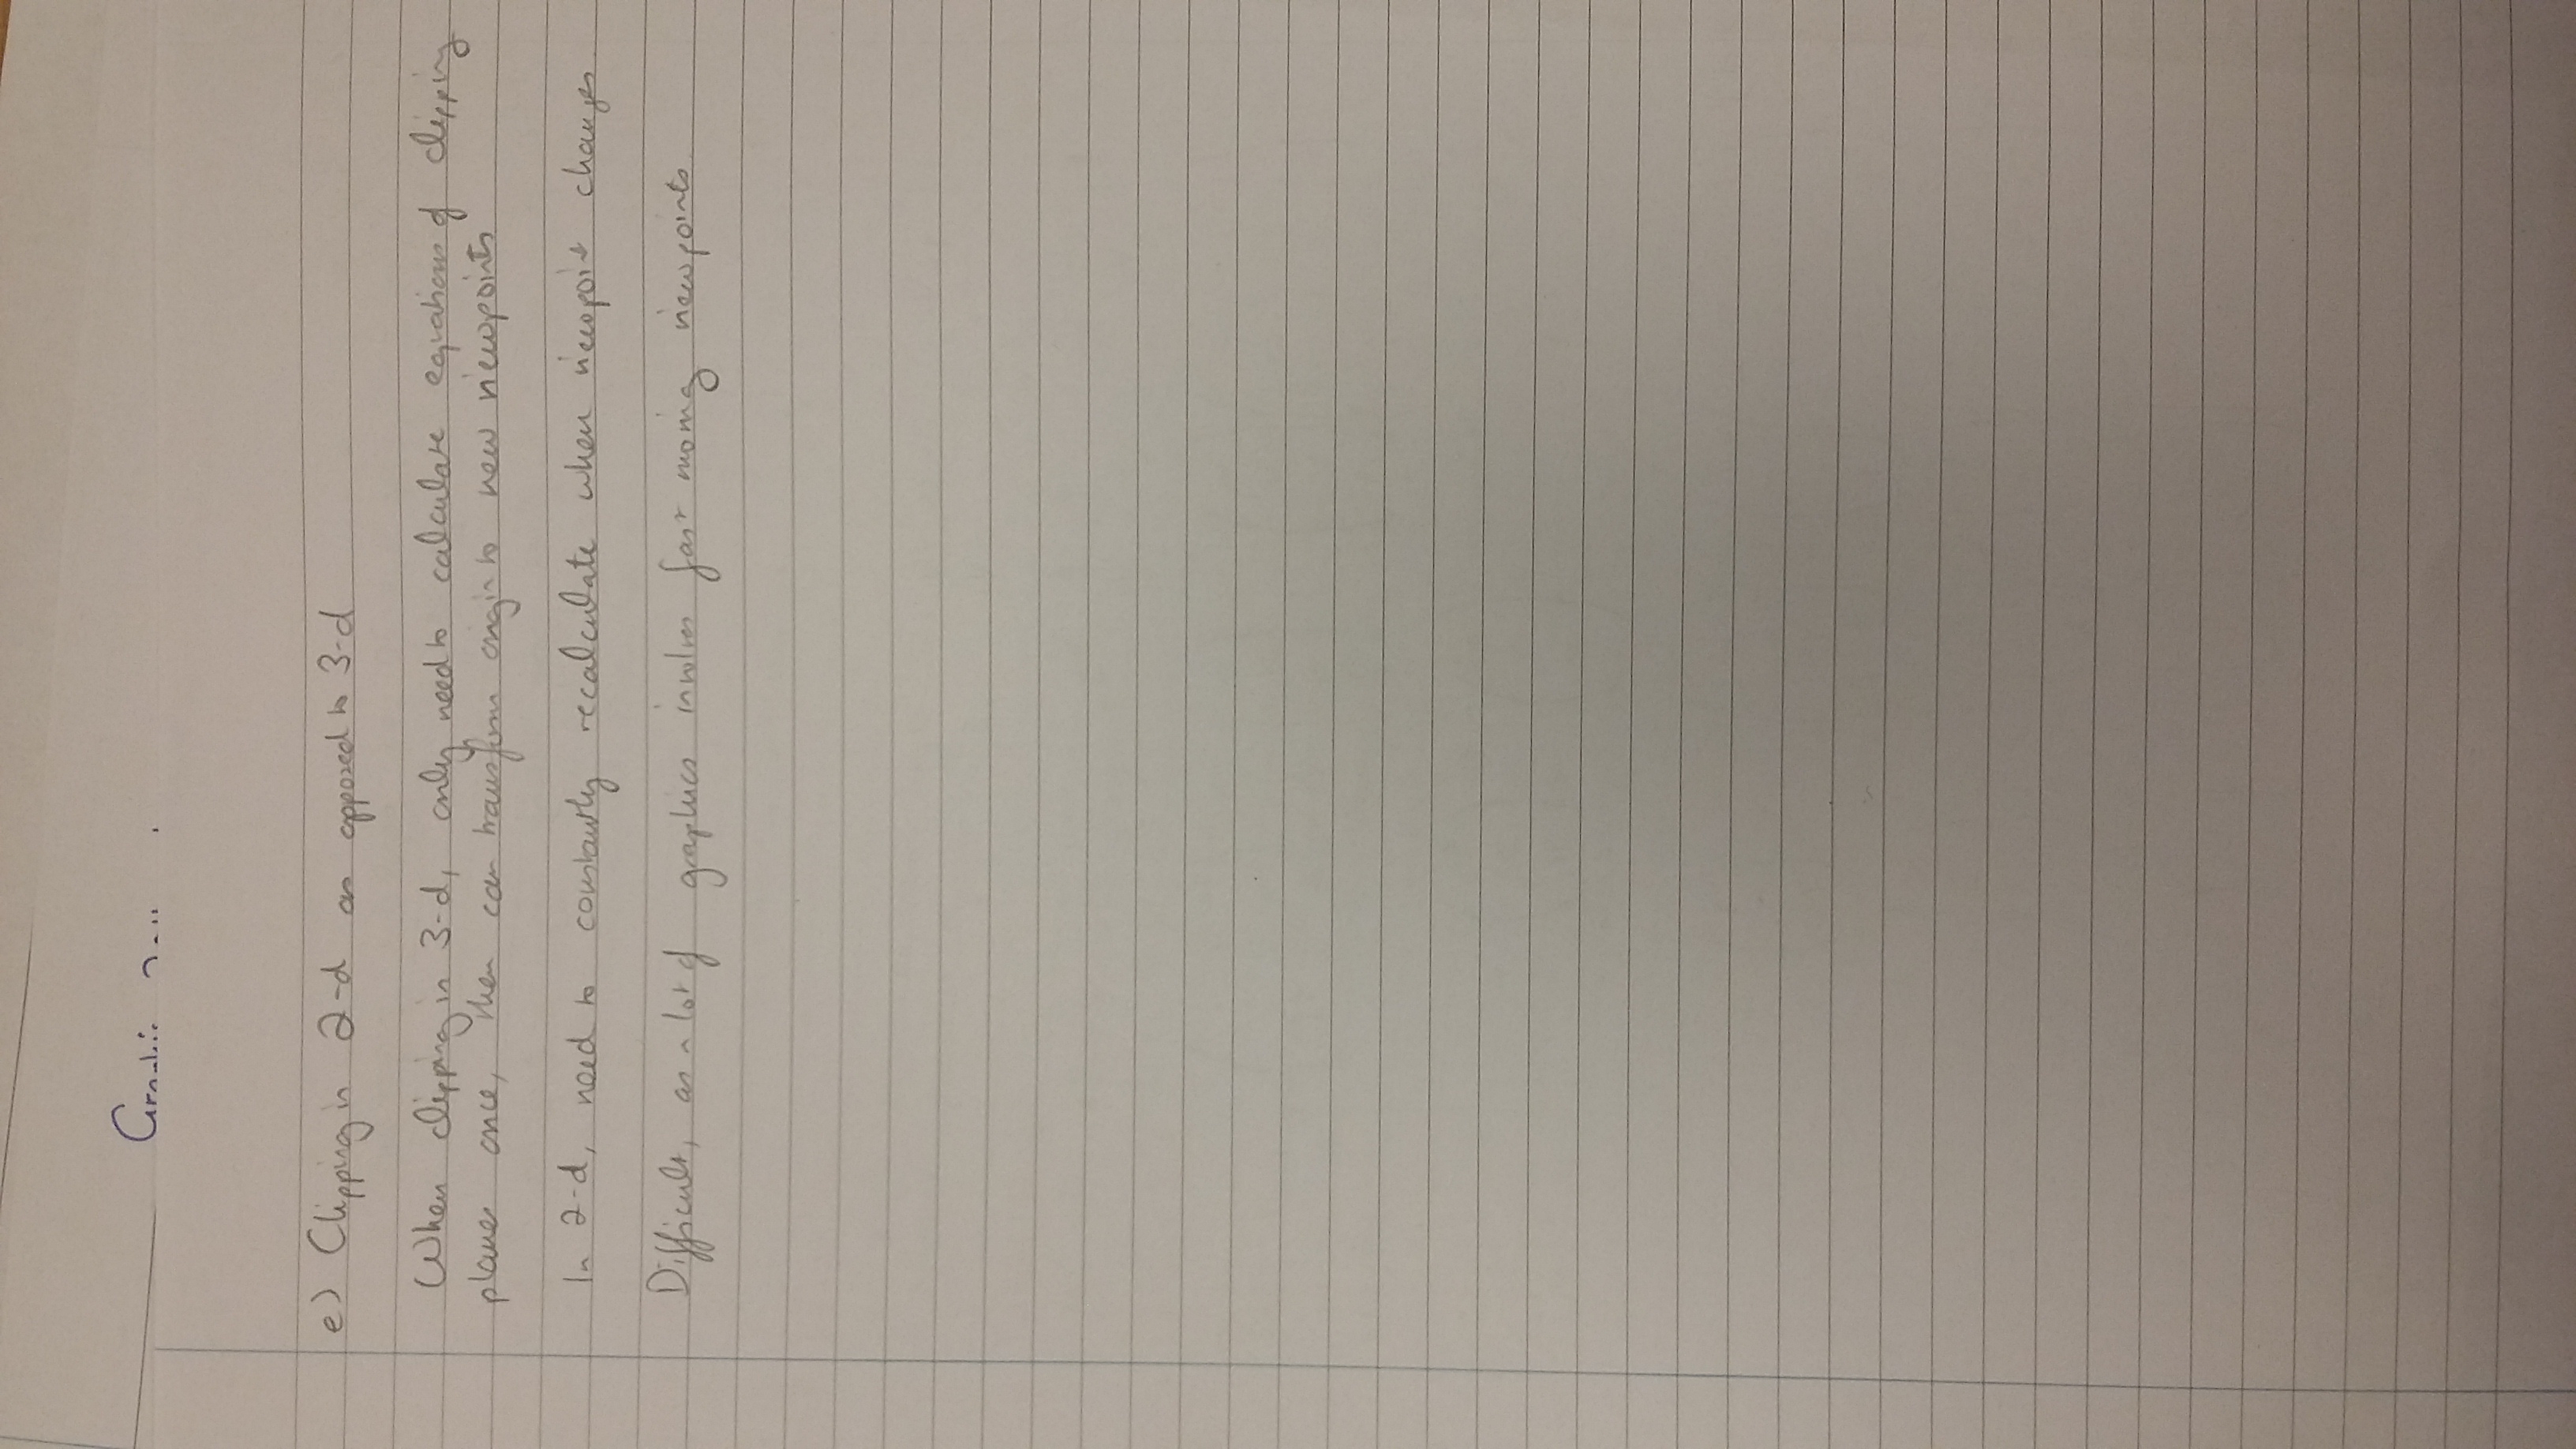 e) Clipping in 2-d as opposed to 3-d
When clipping in 3-d, only need to calculate equations of clipping
planes once, then can transform origin to new viewpoints
In 2-d, need to constantly recalculate when viewpoint changes.
Difficult, as a lot of graphics involves fast moving viewpoints.